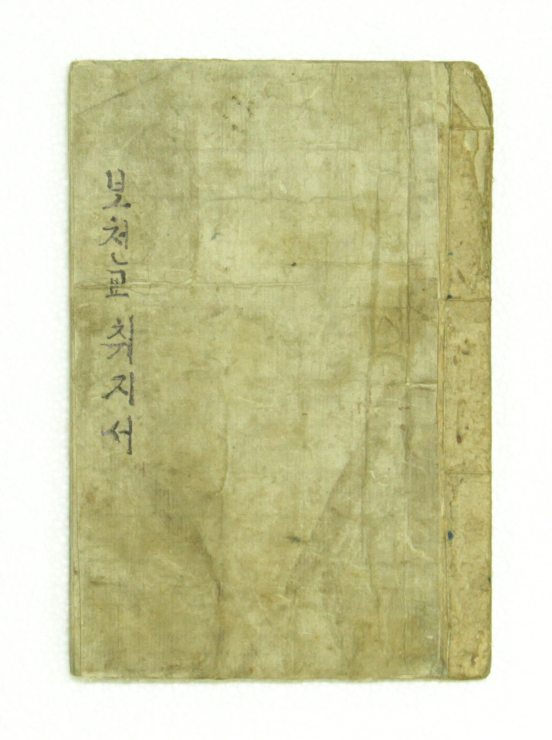 보천교 취지서